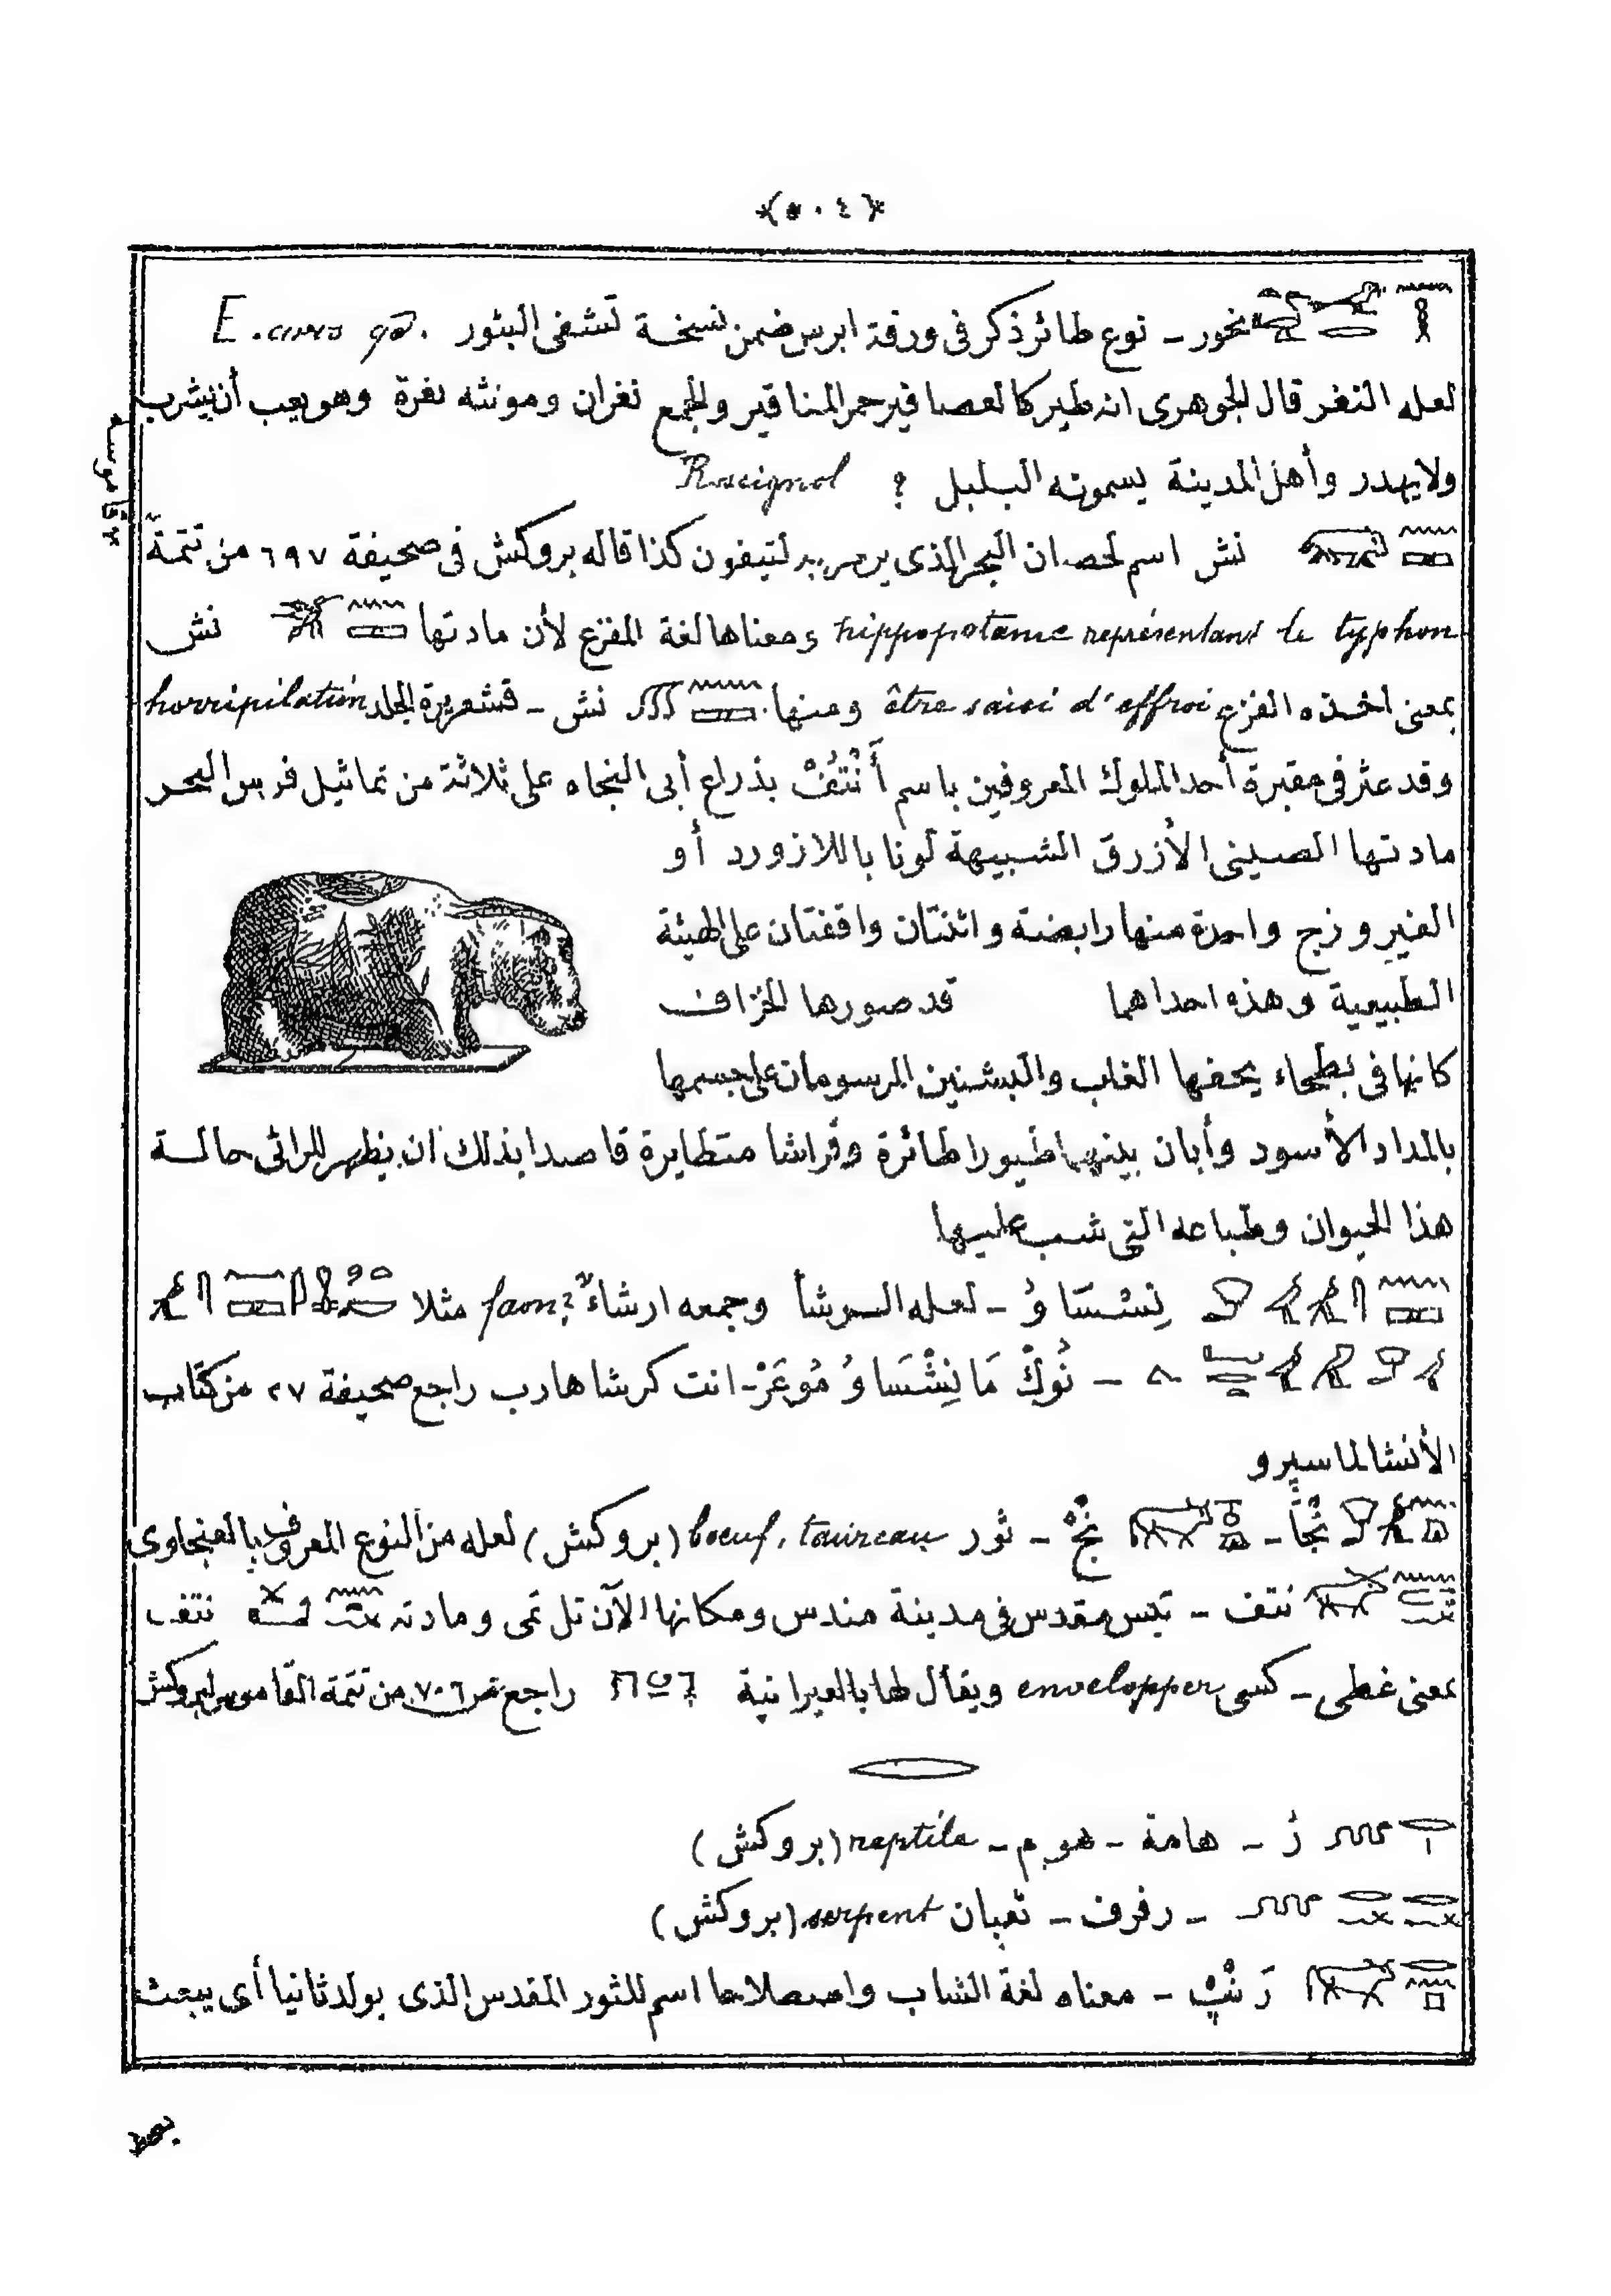 ﴿٥٠٤﴾
نخور ـ نوع طائر ذكر فى ورقة ابرس ضمن نسخة تشفى البثور E.
لعله النغر قال الجوهرى انه طير كالعصافير حمر المناقير والجمع نغران ومونثه نغرة وهو يعب أن يشرب
ولا يهدر وأهل المدينة يسمونه البلبل ? Rossignol
نش اسم لحصان البحر الذى لتيفون كذا قاله بروكش فى صحيفة ٦٩٧ من تتمة
قاموسه
hippopotame représentant le typhon ومعناها لغة المفزع لأن مادتها نش
بمعنى أخذه الفزع être saisi d'effroi ومنها نش ـ قشعريرة الجلد horripilation
وقد عثر فى مقبرة أحد الملوك المعروفين باسم أَنْتُفْ بذراع أبى النجاه على ثلاثة من تماثيل فرس البحر
مادتها الصينى الأزرق الشبيهة لونا باللازورد أو
الفيروزج واحدة منها رابضة واثنتان واقفتان على الهيئة
الطبيعية وهذه احداهما قد صورها الخزاف
كانها فى بطحاء يحفها الغاب والبشنين المرسومان على جسمها
بالمداد الأسود وأبان بينها طيورا طائرة وفراشا متطايرة قاصدا بذلك ان يظهر للرائى حالة
هذا الحيوان وطباعه التى شب عليها
نِشْسَاوُ ـ لعله الرشأ وجمعه ارشاء faon? مثلا
ـ نُوكْ مَا نِشْسَاوُ مُوعَرْ ـ انت كرشا هارب راجع صحيفة ٢٧ من كتاب
الأنشا لماسپرو
نْجَأْ ـ نْجْ ـ ثور boeuf, taureau (بروكش) لعله من النوع المعروف بالعنجاوى
نتف ـ تيس مقدس فى مدينة مندس ومكانها الآن تل تمى ومادته نتف
بمعنى غطى ـ كسى envelopper ويقال لها بالعبرانية راجع ٧٠٦ من تتمة القاموس لبروكش
رُ ـ هامة ـ هوم ـ reptile (بروكش)
ـ رفرف ـ ثعبان serpent (بروكش)
رَنْپْ ـ معناه لغة الشاب واصطلاحا اسم للثور المقدس الذى يولد ثانيا أى يبعث